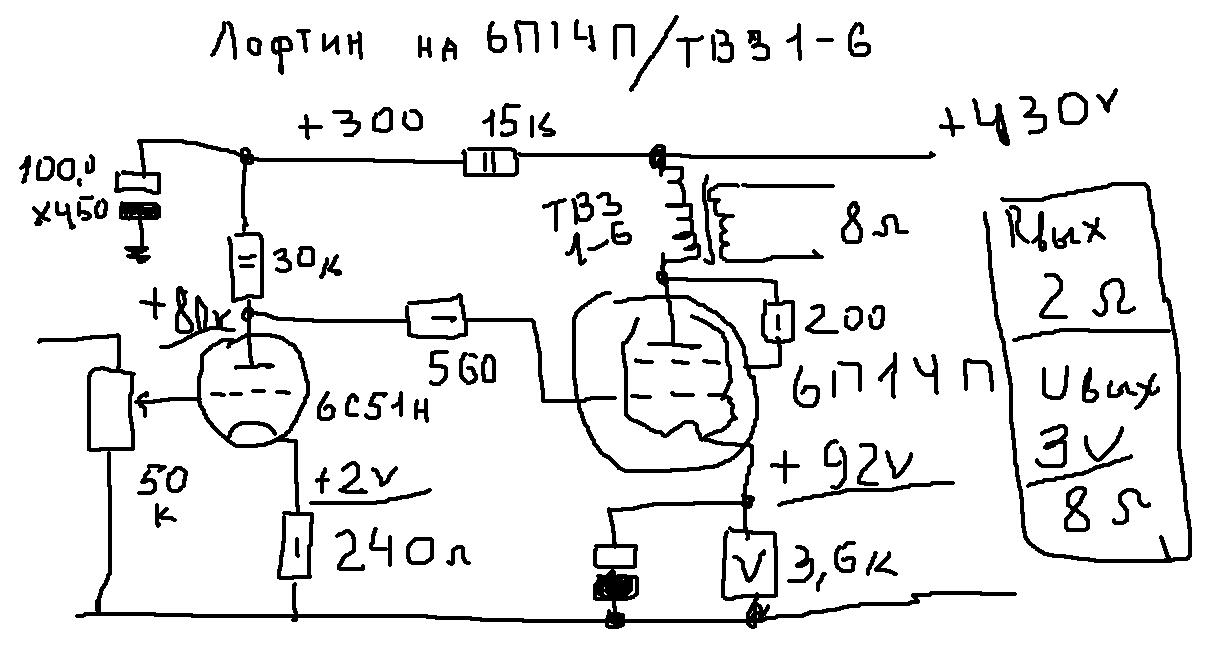 Лофтин на 6П14П/ТВЗ 1-6
+300
15к
+430v
100,0
х450
ТВЗ
1-6
8Ω
30к
+80v
200
560
6П14П
6С51Н
50
к
+2v
240Ω
+92v
3,6к
Rвых
2Ω
Uвых
3V
8Ω